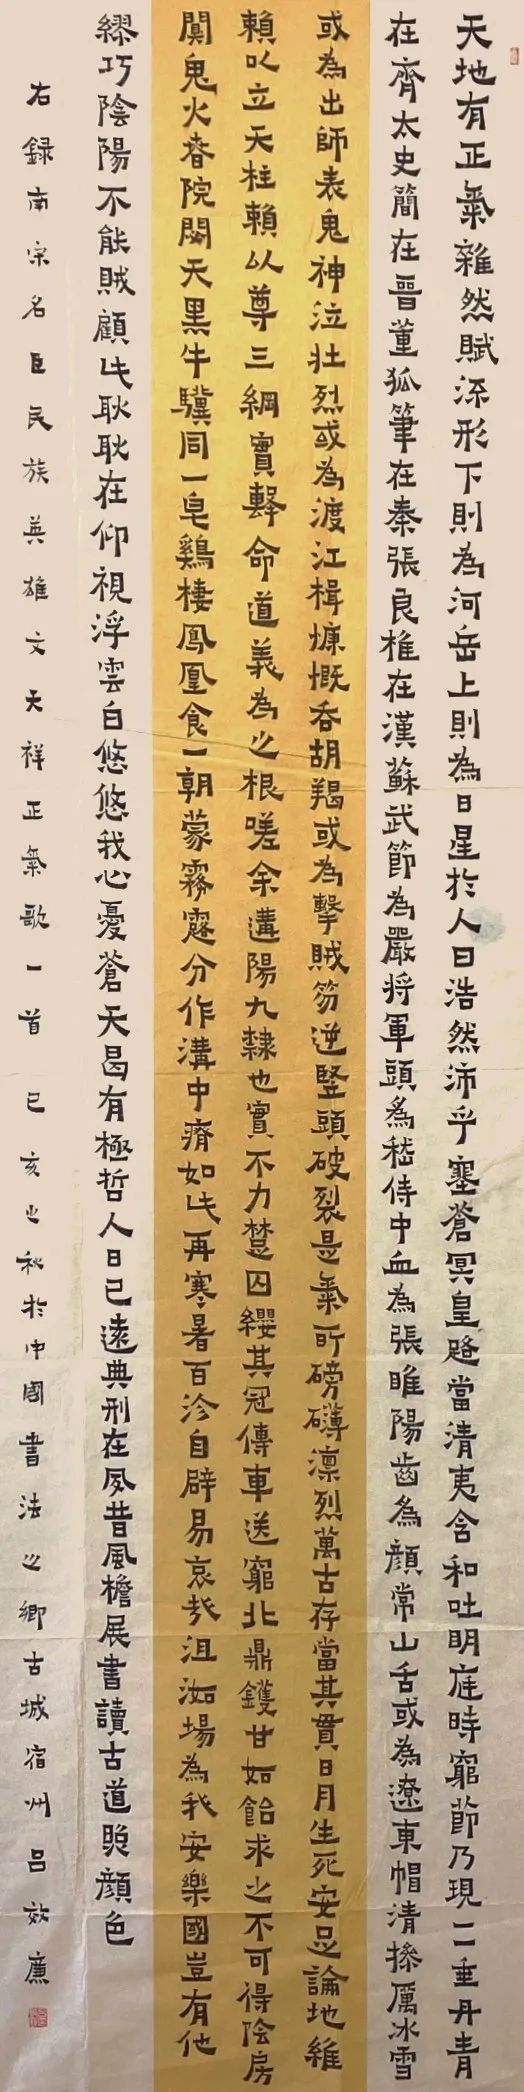 天地有正氣雜然賦流形下則為河岳上則為日星於人曰浩然沛乎塞蒼冥皇路當清夷含和吐明庭時窮節乃現一一垂丹青
在齊太史簡在晉董狐筆在秦張良椎在漢蘇武節為嚴將軍頭為嵇侍中血為張睢陽齒為顏常山舌或為遼東帽清操厲冰雪
或為出師表鬼神泣壯烈或為渡江楫慷慨吞胡羯或為擊賊笏逆豎頭破裂是氣所磅礴凛烈萬古存當其貫日月生死安足論地維
賴以立天柱賴以尊三綱實繫命道義為之根嗟余遘陽九隸也實不力楚囚纓其冠傳車送窮北鼎鑊甘如飴求之不可得陰房
闃鬼火春院閟天黑牛驥同一皂鷄棲鳳凰食一朝蒙霧露分作溝中瘠如此再寒暑百沴自辟易哀哉沮洳場為我安樂國豈有他
繆巧陰陽不能賊顧此耿耿在仰視浮雲白悠悠我心憂蒼天曷有極哲人日已遠典刑在夙昔風檐展書讀古道照顏色
右録南宋名臣民族英雄文天祥正氣歌一首 己亥之秋於中國書法之鄉古城宿州呂效廉